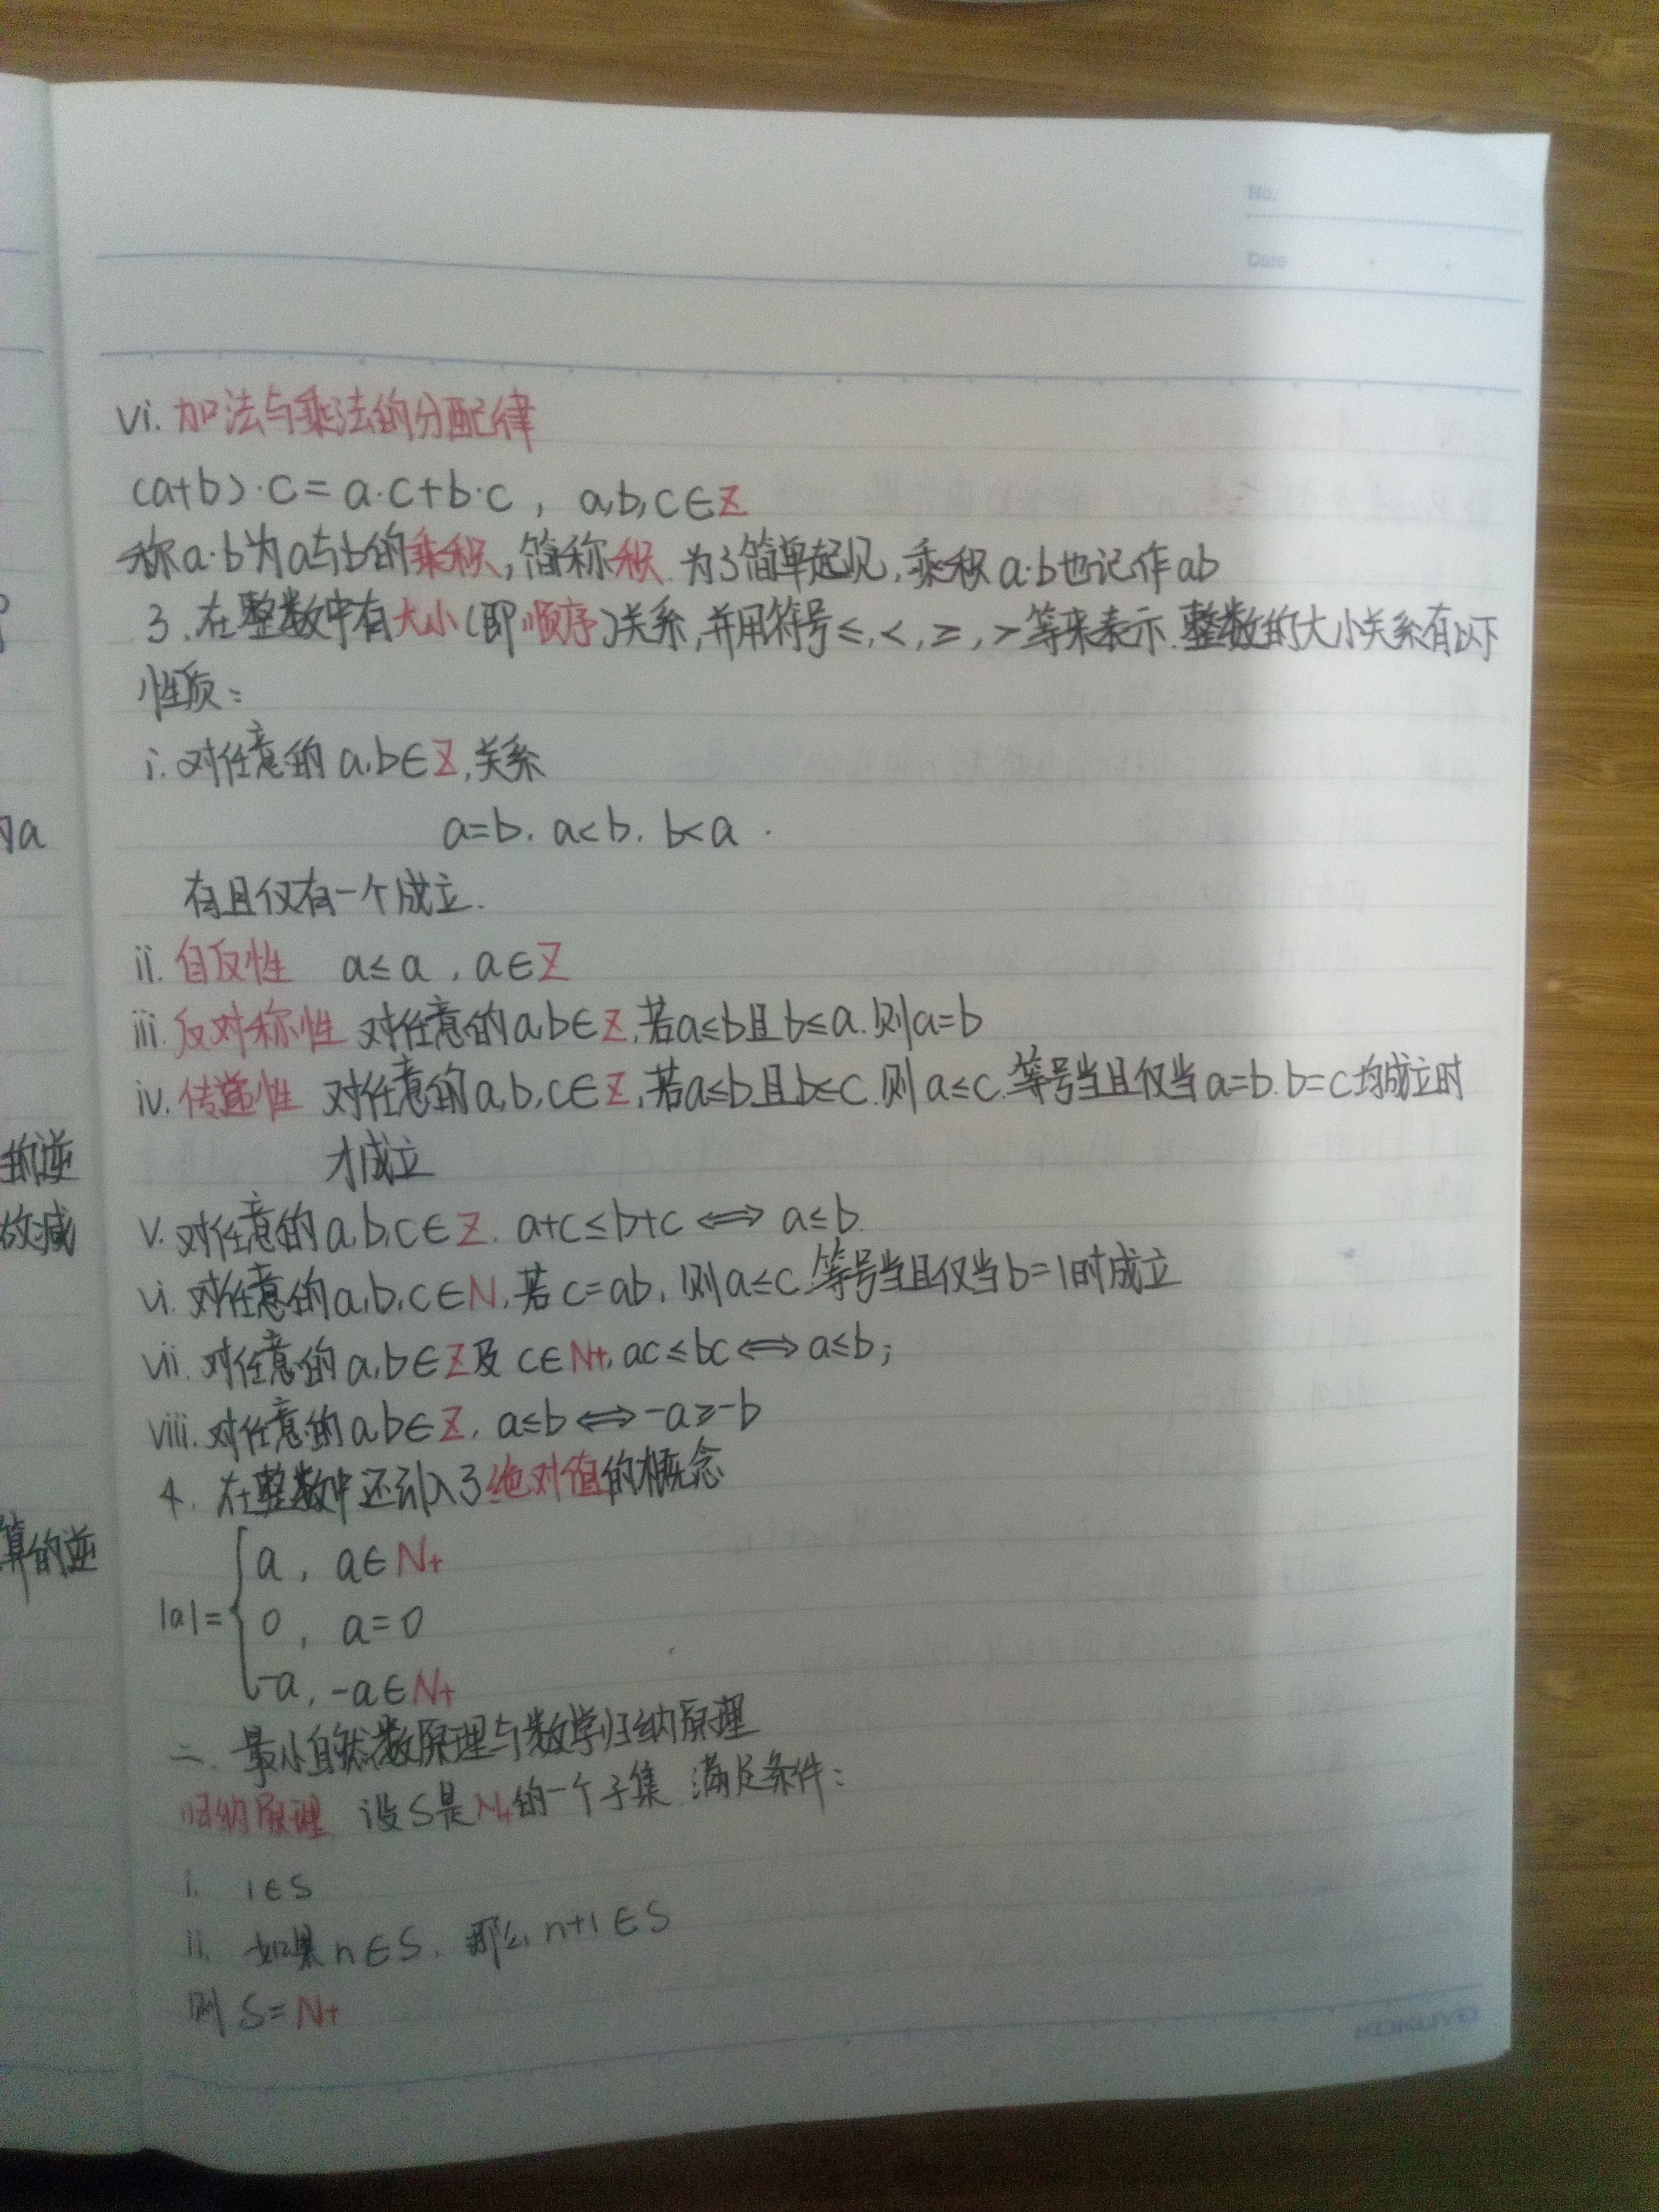 No.
Date
vi. 加法与乘法的分配律
(a+b)·c = a·c+b·c , a,b,c∈Z
称a·b为a与b的乘积,简称积.为了简单起见,乘积a·b也记作ab
3. 在整数中有大小(即顺序)关系,并用符号≤,<,≥,>等来表示.整数的大小关系有以下
性质:
i. 对任意的a,b∈Z,关系
a=b, a<b, b<a.
有且仅有一个成立.
ii. 自反性 a≤a, a∈Z
iii. 反对称性 对任意的a,b∈Z,若a≤b且b≤a.则a=b
iv. 传递性 对任意的a,b,c∈Z,若a≤b且b≤c.则a≤c.等号当且仅当a=b.b=c均成立时
才成立
v. 对任意的a,b,c∈Z. a+c≤b+c ⟺ a≤b.
vi. 对任意的a,b,c∈N,若c=ab, 则a≤c.等号当且仅当b=1时成立
vii. 对任意的a,b∈Z及 c∈N+, ac≤bc⟺a≤b;
viii. 对任意的a,b∈Z, a≤b⟺-a≥-b
4. 在整数中还引入了绝对值的概念
a, a∈N+
|a|= { 0, a=0
-a, -a∈N+
二. 最小自然数原理与数学归纳原理
归纳原理 设S是N+的一个子集 满足条件:
i. 1∈S
ii. 如果n∈S, 那么n+1∈S
则 S=N+
的a
的逆
故减
算的逆